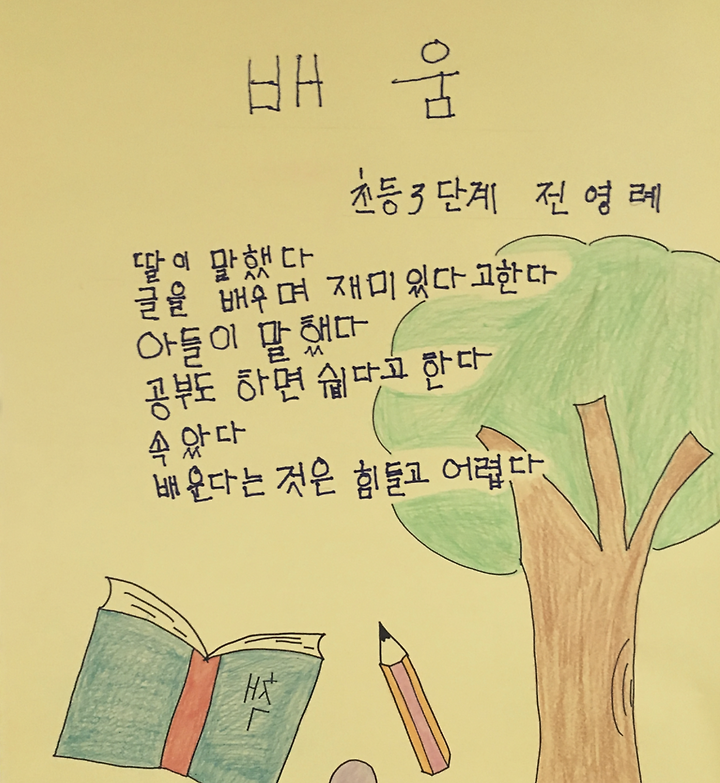 배움
초등3단계 전영례
딸이 말했다
글을 배우며 재미있다고한다
아들이 말했다
공부도 하면 쉽다고 한다
속았다
배운다는 것은 힘들고 어렵다